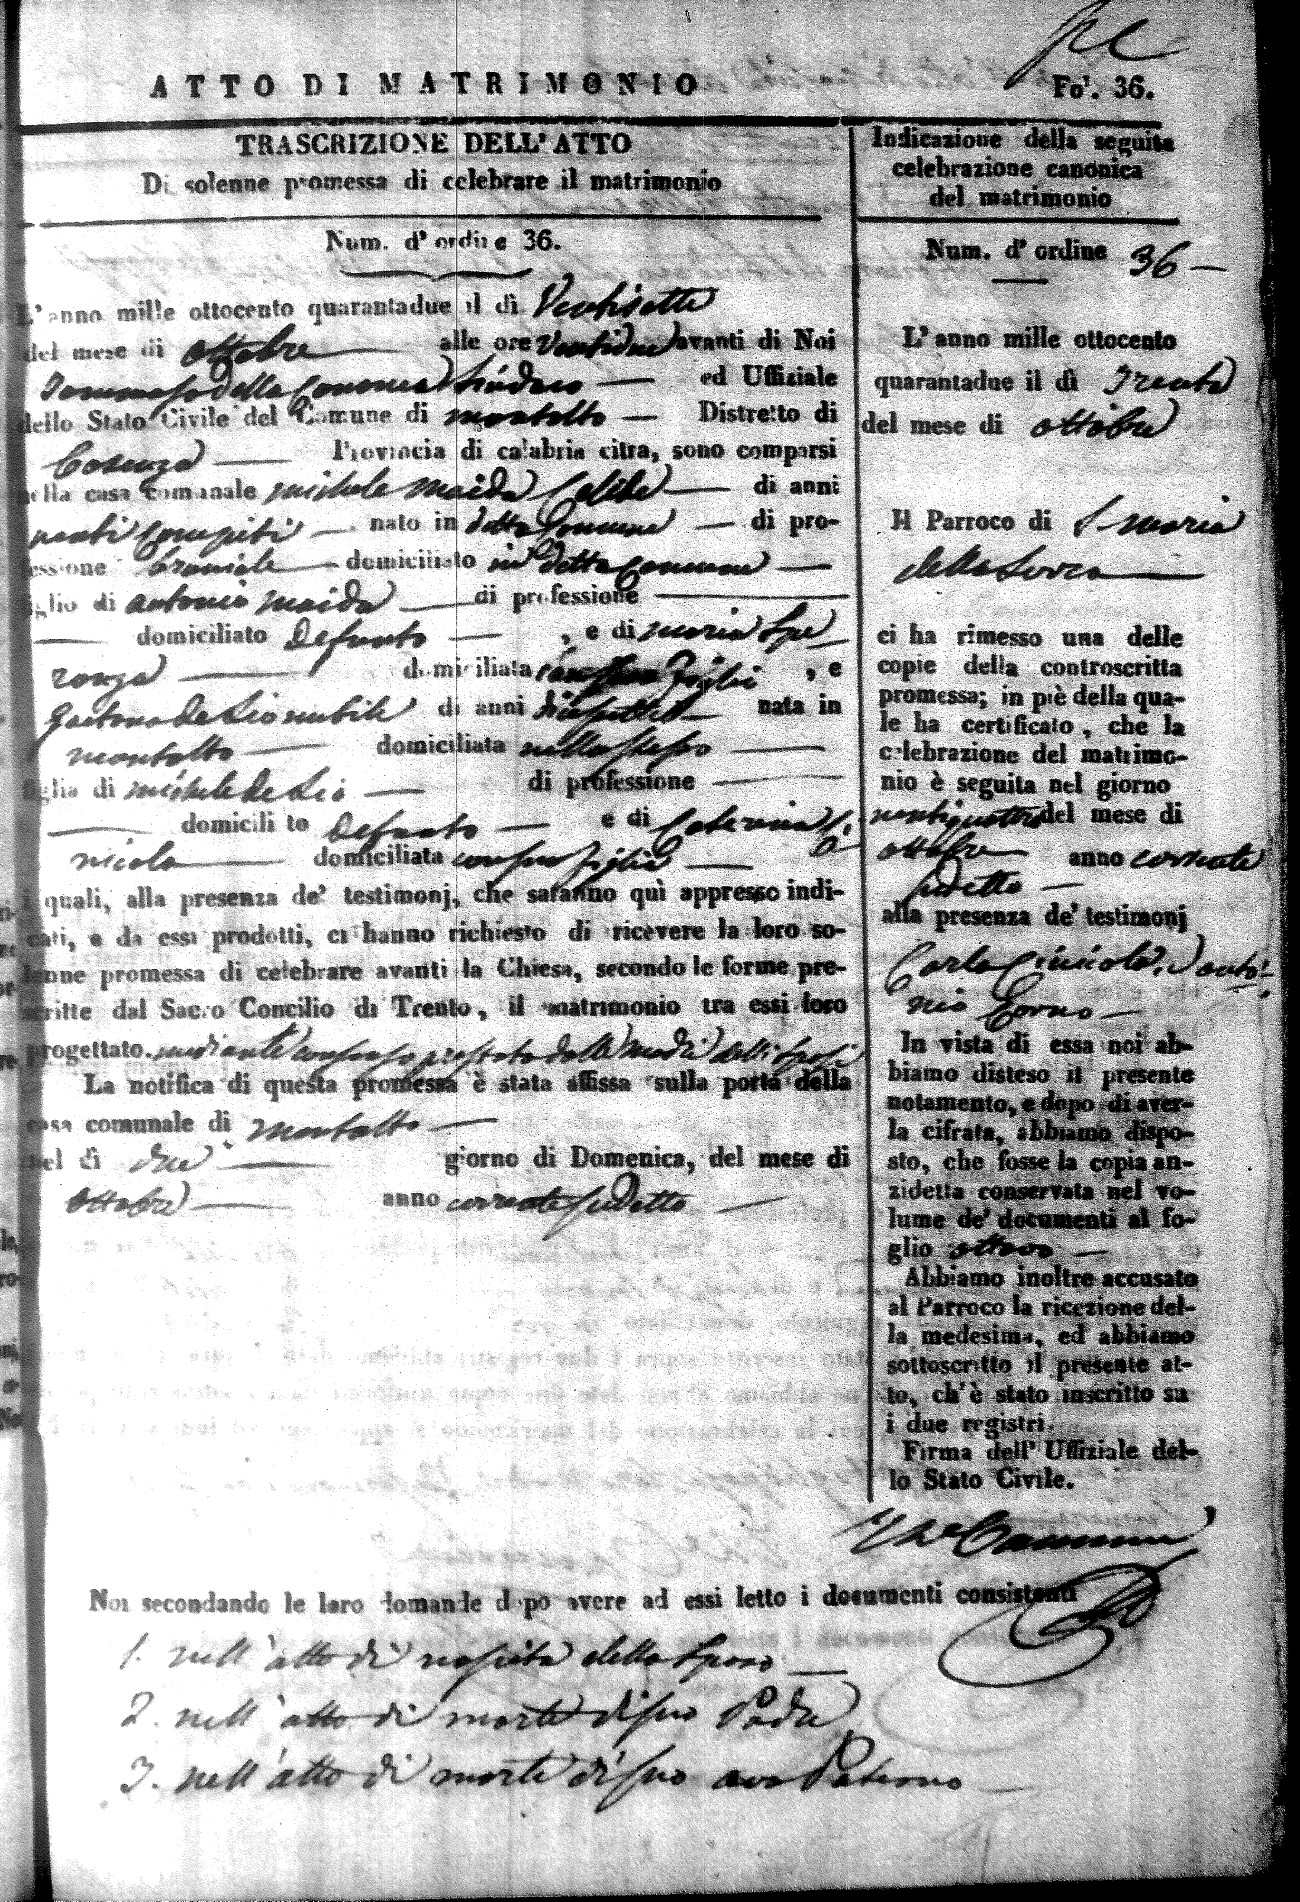 ATTO DI MATRIMONIO
Fo'. 36.
TRASCRIZIONE DELL' ATTO
Di solenne promessa di celebrare il matrimonio
Num. d' ordine 36.
L' anno mille ottocento quarantadue il dì Ventisette
del mese di ottobre alle ore avanti di Noi
Tommaso della Sindaco ed Uffiziale
dello Stato Civile del Comune di montalto Distretto di
Cosenza Provincia di calabria citra, sono comparsi
nella casa comunale michele Maida Celibe di anni
nato in detto Comune di pro-
essione Bracciale domiciliato in detto Comune
figlio di antonio maida di professione
domiciliato Defunto , e di maria Spe
ranza domiciliata , e
Gaetana de Lio nubile di anni nata in
montalto domiciliata nello stesso
figlia di michele de Lio di professione
domicili to Defunto e di Caterina di
nicola domiciliata con sua figlia
i quali, alla presenza de' testimonj, che saranno quì appresso indi-
cati, e da essi prodotti, ci hanno richiesto di ricevere la loro so-
lenne promessa di celebrare avanti la Chiesa, secondo le forme pre-
scritte dal Sacro Concilio di Trento, il matrimonio tra essi loro
progettato. mediante consenso prestato dalle madri delli sposi
La notifica di questa promessa è stata affissa sulla porta della
casa comunale di montalto
nel dì due giorno di Domenica, del mese di
ottobre anno corrente sudetto
Indicazione della seguita
celebrazione canonica
del matrimonio
Num. d' ordine 36
L' anno mille ottocento
quarantadue il dì Trenta
del mese di ottobre
Il Parroco di S. maria
della Serra
ci ha rimesso una delle
copie della controscritta
promessa; in piè della qua-
le ha certificato, che la
celebrazione del matrimo-
nio è seguita nel giorno
ventiquattro del mese di
ottobre anno corrente
sudetto
alla presenza de' testimonj
Carlo anto-
nio
In vista di essa noi ab-
biamo disteso il presente
notamento, e dopo di aver-
la cifrata, abbiamo dispo-
sto, che fosse la copia an-
zidetta conservata nel vo-
lume de' documenti al fo-
glio ottavo
Abbiamo inoltre accusato
al Parroco la ricezione del-
la medesima, ed abbiamo
sottoscritto il presente at-
to, ch' è stato inscritto su
i due registri.
Firma dell' Uffiziale del-
lo Stato Civile.
Noi secondando le loro domande dopo avere ad essi letto i documenti consistenti
1. nell' atto di nascita dello sposo
2. nell' atto di morte di suo Padre
3. nell' atto di morte di suo avo Paterno